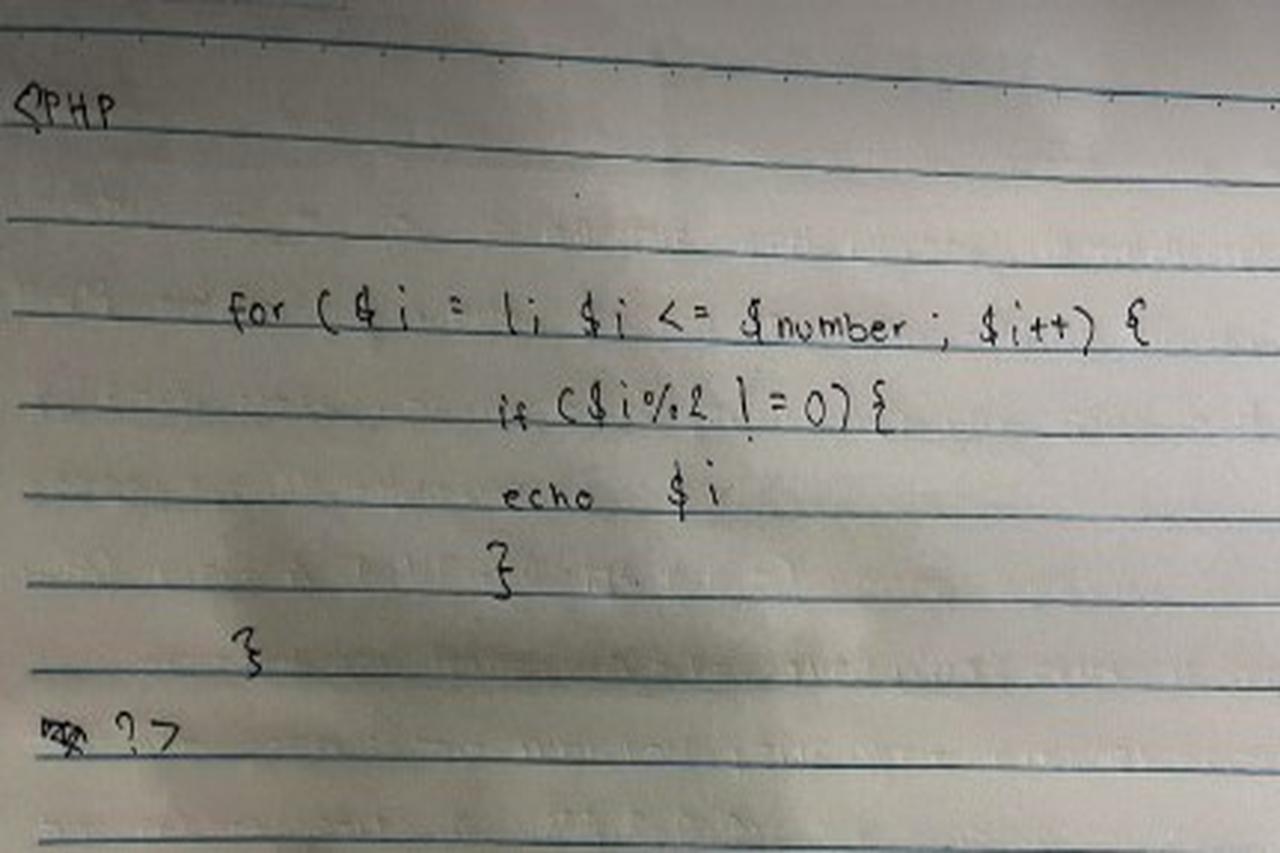 <?PHP
for ($i = 1; $i <= $number; $i++) {
if ($i%2 != 0) {
echo $i
}
}
?>